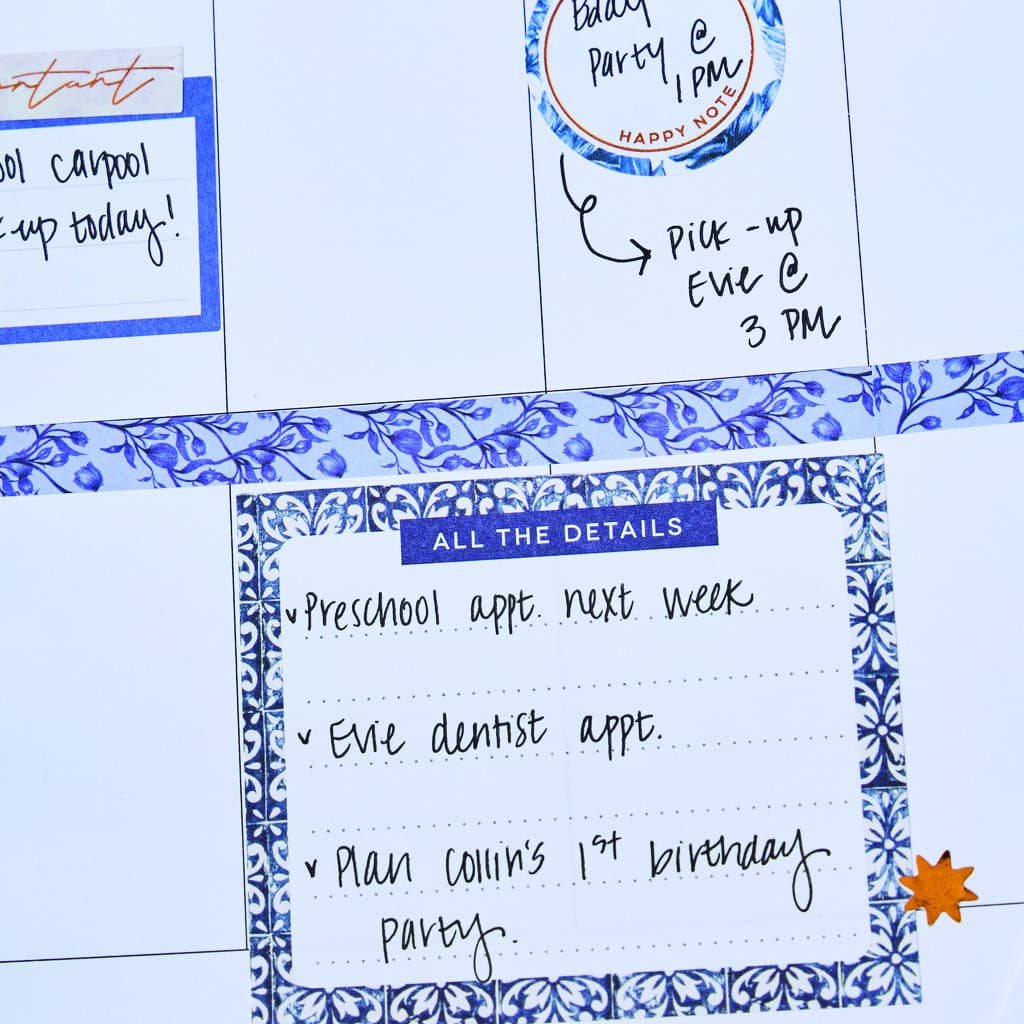 Bday
Party @
1 PM
HAPPY NOTE
carpool
up today!
Pick-up
Evie @
3 PM
ALL THE DETAILS
Preschool appt. next week
Evie dentist appt.
Plan Collin's 1st birthday
party.